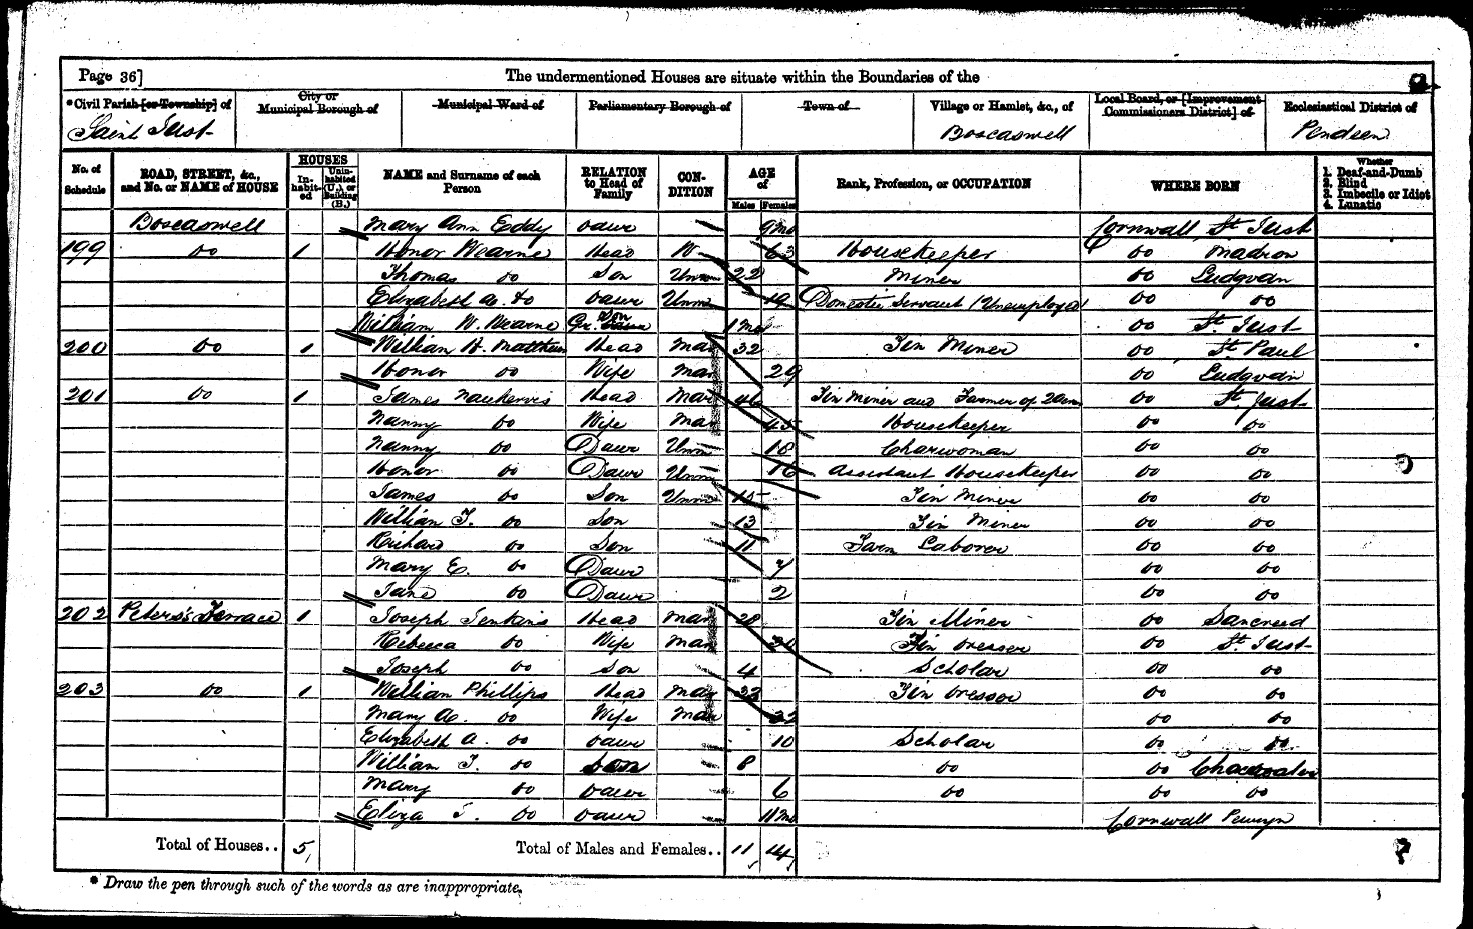 Page 36]
The undermentioned Houses are situate within the Boundaries of the
*Civil Parish [or Township] of
City or Municipal Borough of
Municipal Ward of
Parliamentary Borough of
Town of
Village or Hamlet, &c., of
Local Board, or [Improvement Commissioners District] of
Ecclesiastical District of
Saint Just Boscaswell Pendeen
No. of Schedule
ROAD, STREET, &c., and No. or NAME of HOUSE
HOUSES
Inhabited
Uninhabited (U.), or Building (B.)
NAME and Surname of each Person
RELATION to Head of Family
CONDITION
AGE of
Males Females
Rank, Profession, or OCCUPATION
WHERE BORN
Whether
1. Deaf-and-Dumb
2. Blind
3. Imbecile or Idiot
4. Lunatic
Boscaswell Mary Ann Eddy Daur 9 Mo Cornwall St Just
199 Do 1 Honor Wearne Head W 63 Housekeeper Do Madron
Thomas Do Son Unm 22 Miner Do Ludgvan
Elizabeth A. Do Daur Unm 19 Domestic Servant (Unemployed) Do Do
William W. Wearne Gr. Son 1 Mo Do St Just
200 Do 1 William H. Matthews Head Mar 32 Tin Miner Do St Paul
Honor Do Wife Mar 29 Do Ludgvan
201 Do 1 James Nankervis Head Mar 46 Tin Miner and Farmer of Do St Just
Nanny Do Wife Mar 45 Housekeeper Do Do
Nanny Do Daur Unm 18 Charwoman Do Do
Honor Do Daur Unm 16 Assistant Housekeeper Do Do
James Do Son Unm 15 Tin Miner Do Do
William T. Do Son 13 Tin Miner Do Do
Richard Do Son 11 Farm Laborer Do Do
Mary E. Do Daur 7 Do Do
Jane Do Daur 2 Do Do
202 Peters's Terrace 1 Joseph Jenkins Head Mar 28 Tin Miner Do Sancreed
Rebecca Do Wife Mar Tin Dresser Do St Just
Joseph Do Son 4 Scholar Do Do
203 Do 1 William Phillips Head Mar 33 Tin Dresser Do Do
Mary A. Do Wife Mar 32 Do Do
Elizabeth A. Do Daur 10 Scholar Do Do
William J. Do Son 8 Do Do Chacewater
Mary Do Daur 6 Do Do Do
Eliza J. Do Daur 11 Mo Cornwall Penryn
Total of Houses.. 5 Total of Males and Females.. 11 14
* Draw the pen through such of the words as are inappropriate.